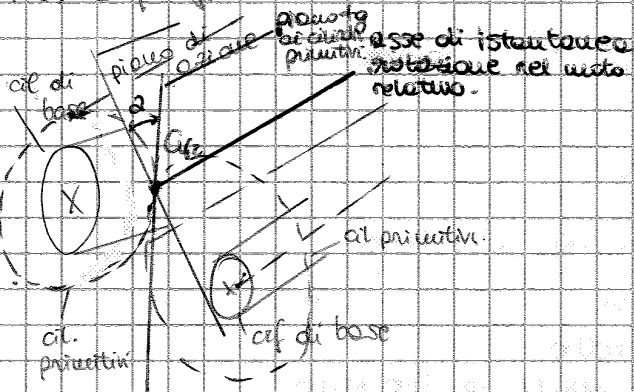 piano di
azione
piano tg
ai cilindri
primitivi
asse di istantanea
rotazione nel moto
relativo.
cil di
base
2
C12
cil primitivi.
cil di base
cil.
primitivi